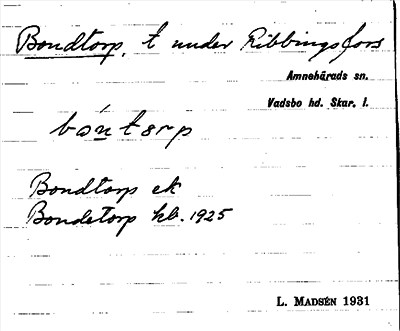 Bondtorp, t under Ribbingsfors
Amnehärads sn.
Vadsbo hd. Skar. l.
bóntorp
Bondtorp ek
Bondetorp kb. 1925
L. MADSÉN 1931